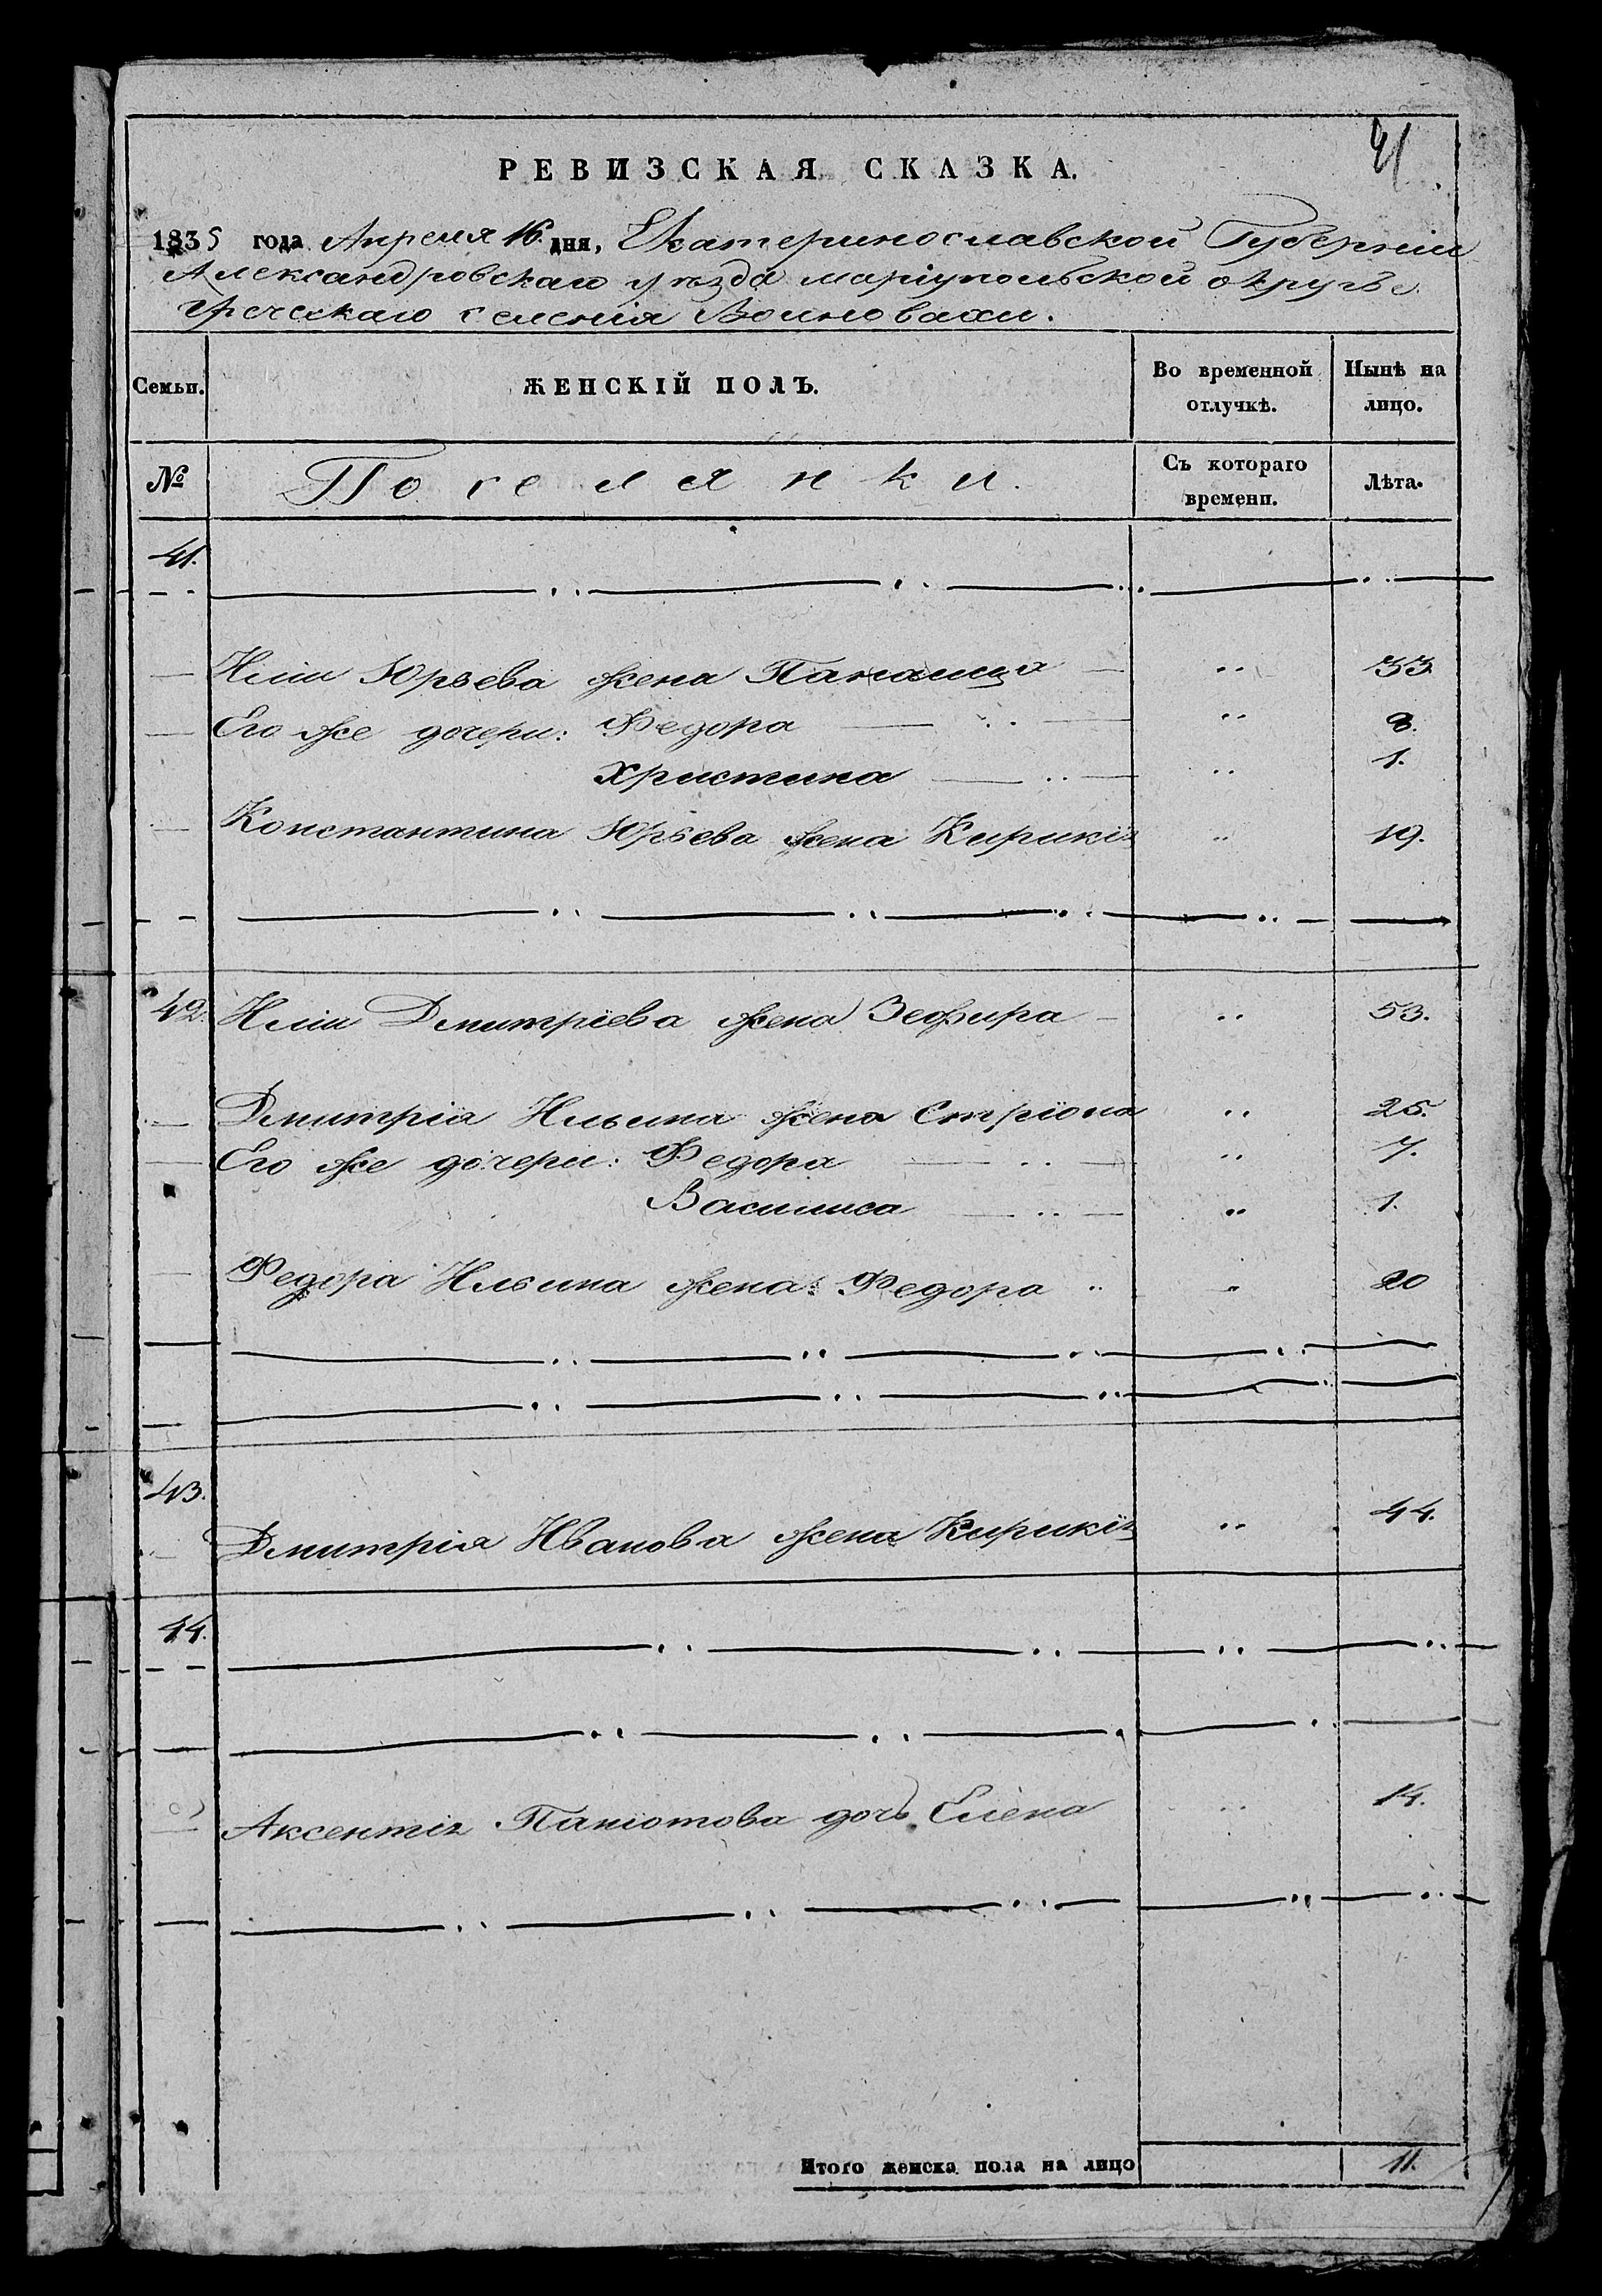 41
РЕВИЗСКАЯ СКАЗКА.
1835 года Апреля 16 дня, Екатеринославской Губерніи
Александровскаго уѣзда маріупольской округѣ
греческаго селенія
Семьи. ЖЕНСКІЙ ПОЛЪ. Во временной отлучкѣ. Нынѣ на лицо.
№ Поселянки. Съ котораго времени. Лѣта.
41.
Иліи Юрьева жена .. 33.
Его же дочери: Федора .. .. 8.
Христина .. .. 1.
Константина Юрьева жена Кирикія .. 19.
42. Иліи Дмитріева жена Зефира .. 53.
Дмитрія Ильина жена .. 25.
Его же дочери: Федора .. .. 7.
Василиса .. .. 1.
Федора Ильина жена: Федора .. .. 20
43.
Дмитрія Иванова жена Кирикія .. 44.
44.
Аксентія Паніотова дочь Елена .. 14.
Итого женска пола на лицо 11.